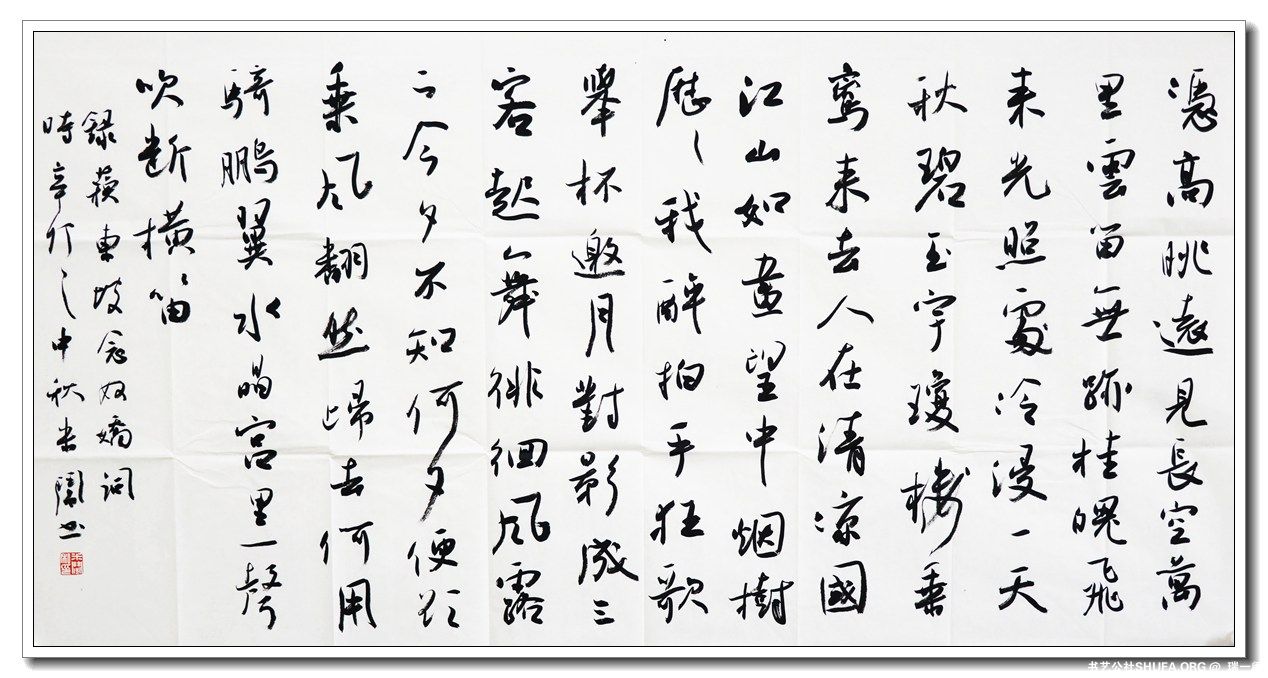 憑高眺遠見長空萬
里雲留無跡桂魄飛
来光照處冷浸一天
秋碧玉宇瓊樓乗
鸾来去人在清凉國
江山如畫望中烟樹
歷〻我醉拍手狂歌
舉杯邀月對影成三
客起舞徘徊風露
下今夕不知何夕便欲
乗风翻然歸去何用
騎鵬翼水晶宫里一聲
吹断橫笛
録蘇東坡念奴嬌詞
時辛卯之中秋朱闇书
书艺公社SHUFA.ORG @